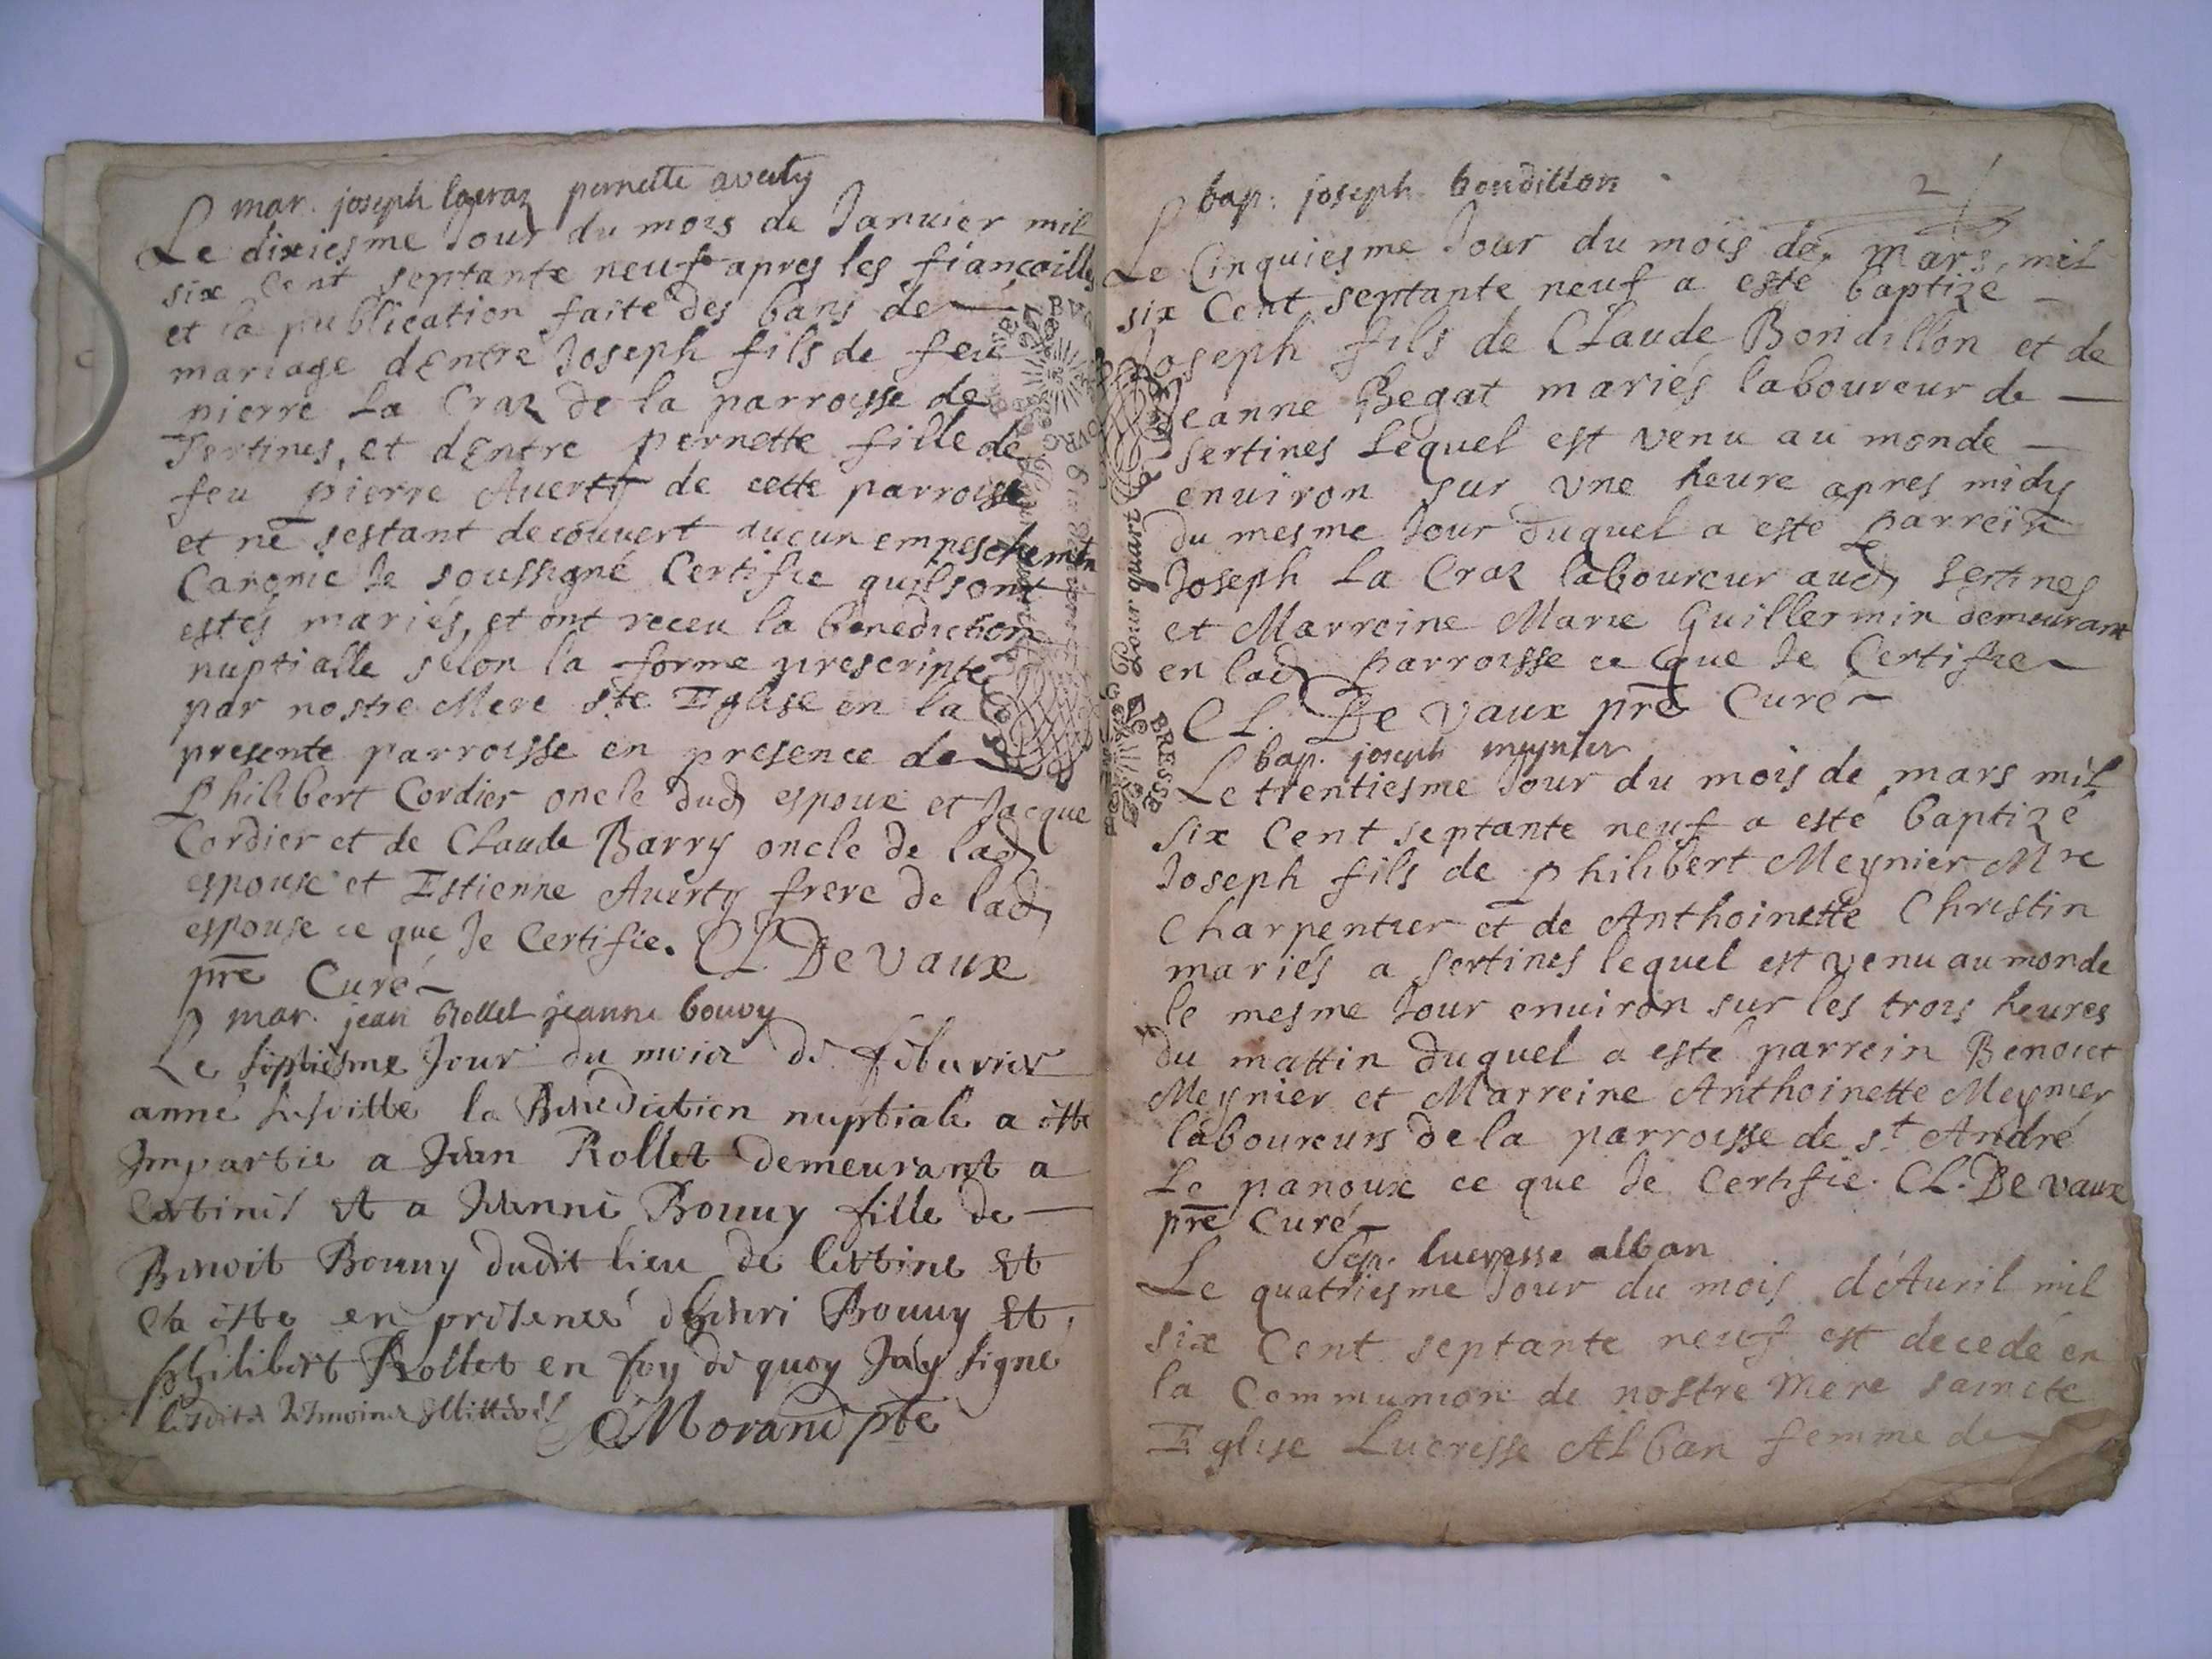 mar. joseph lacraz pernette averty
Le dixiesme Jour du mois de Januier mil
six Cent septante neuf apres les fiancailles
et la publication faite des bans de
mariage dEntre Joseph fils de feu
pierre La Craz de la parroisse de
Sertines, et dEntre pernette fille de
feu pierre Auerty de cette parroisse
et ne sestant decouvert aucun empeschement
Canonic Je soussigné Certifie quils ont
estés mariés, et ont receu la benediction
nuptialle selon la forme prescripte
par nostre Mere ste Eglise en la
presente parroisse en presence de
Philibert Cordier oncle dud espoux et Jacque
Cordier et de Claude Barry oncle de lad
espouse et Estienne Auerty frere de lad
espouse ce que Je Certifie. CL. De Vaux
pre Curé
mar. jean Rollet jeanne bouvy
Le septiesme Jour du mois de febuvrier
anné susditte la Benediction nuptiale a este
Impartie a Jean Rollet demeurant a
Certines et a Jeanne Bouuy fille de
Benoit Bouuy dudit lieu de Certine et
Ca este en presence dhenri Bouuy et
philibert Rollet en foy de quoy Jay signe
lesdits tesmoins illitérés Morand pbte
2
bap. joseph bondillon
Le Cinquiesme Jour du mois de mars mil
six Cent septante neuf a esté baptizé
Joseph fils de Claude Bondillon et de
Jeanne Begat mariés laboureur de
Sertines Lequel est venu au monde
enuiron sur vne heure apres midy
du mesme Jour duquel a esté parrein
Joseph La Craz laboureur aud Sertines
et Marreine Marie Guillermin demeurant
en lad parroisse ce que Je Certifie
CL. De Vaux pre Curé
bap. joseph meynier
Le trentiesme Jour du mois de mars mil
six Cent septante neuf a esté baptizé
Joseph fils de philibert Meynier Mre
Charpentier et de Anthoinette Christin
mariés a Sertines lequel est venu au monde
le mesme Jour enuiron sur les trois heures
du mattin duquel a esté parrein Benoict
Meynier et Marreine Anthoinette Meynier
laboureurs de la parroisse de st André
Le panoux ce que Je Certifie. CL. De vaux
pre Curé
Sep. lucresse alban
Le quatriesme Jour du mois dAuril mil
six Cent septante neuf est decedé en
la Communion de nostre Mere saincte
Eglise Lucresse Alban femme de
BRESSE